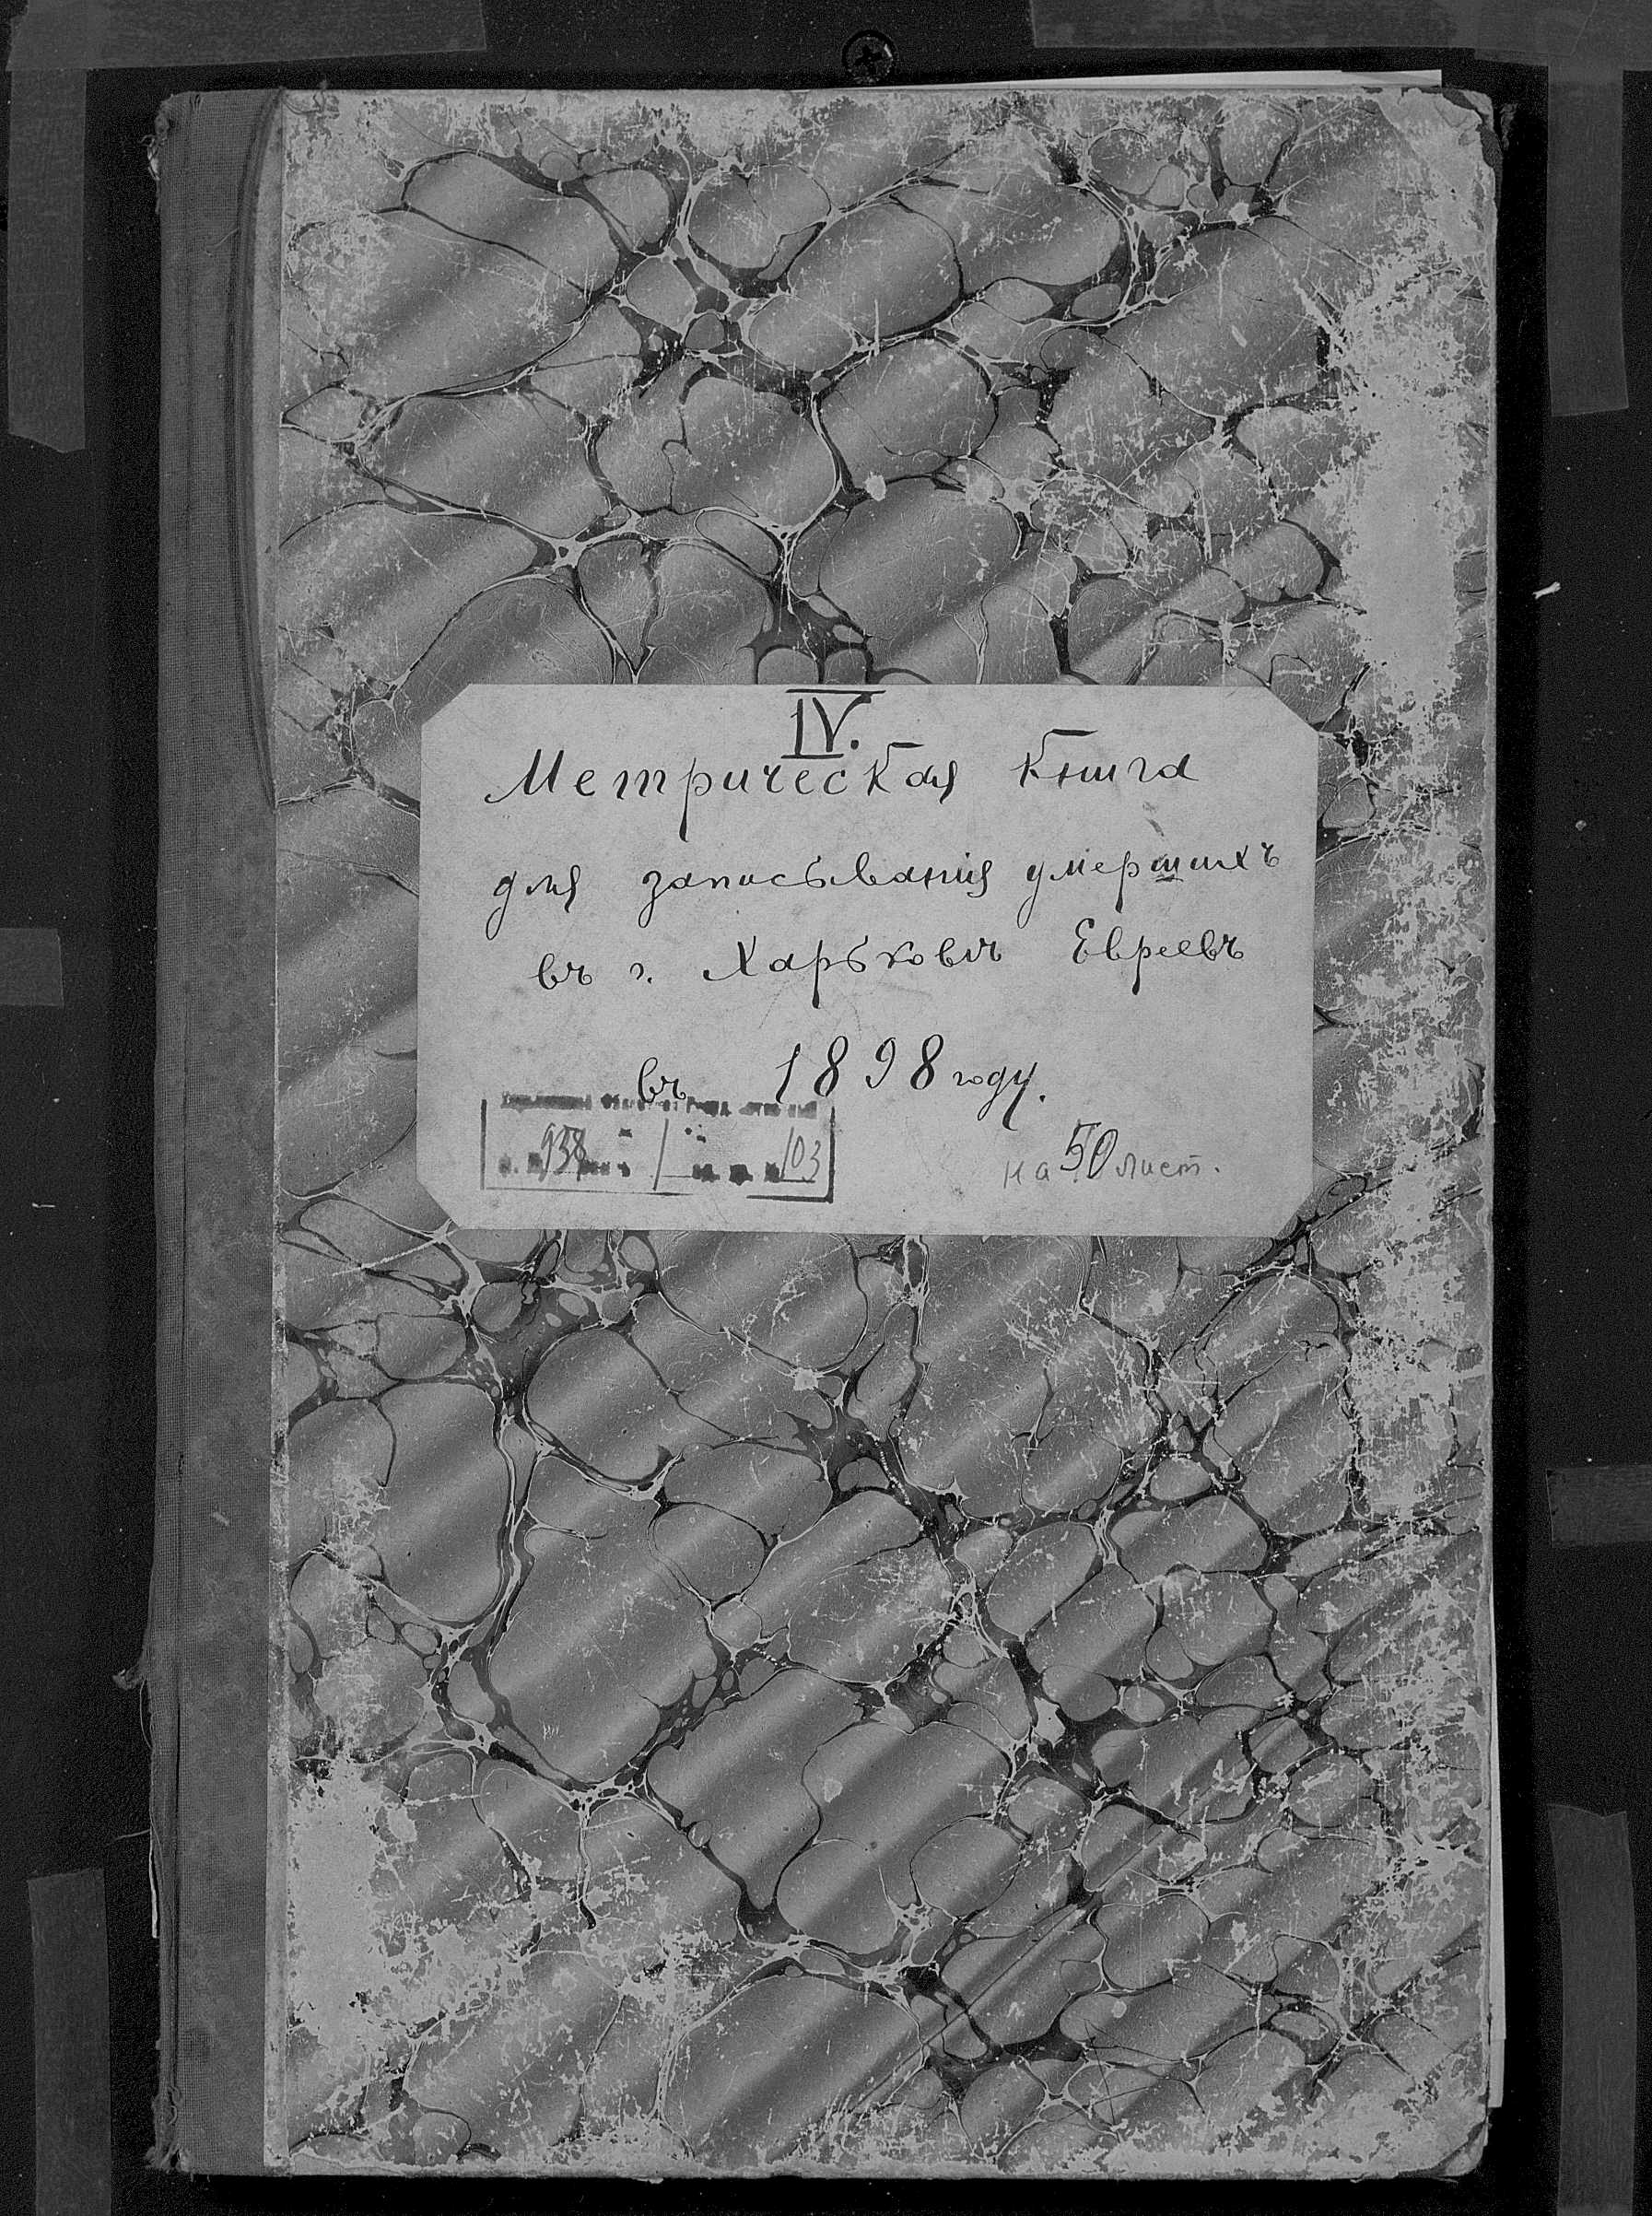 IV.
Метрическая Книга
для записыванія умершихъ
въ г. Харьковѣ Евреевъ
въ 1898 году.
938 1 103
на 50 лист.